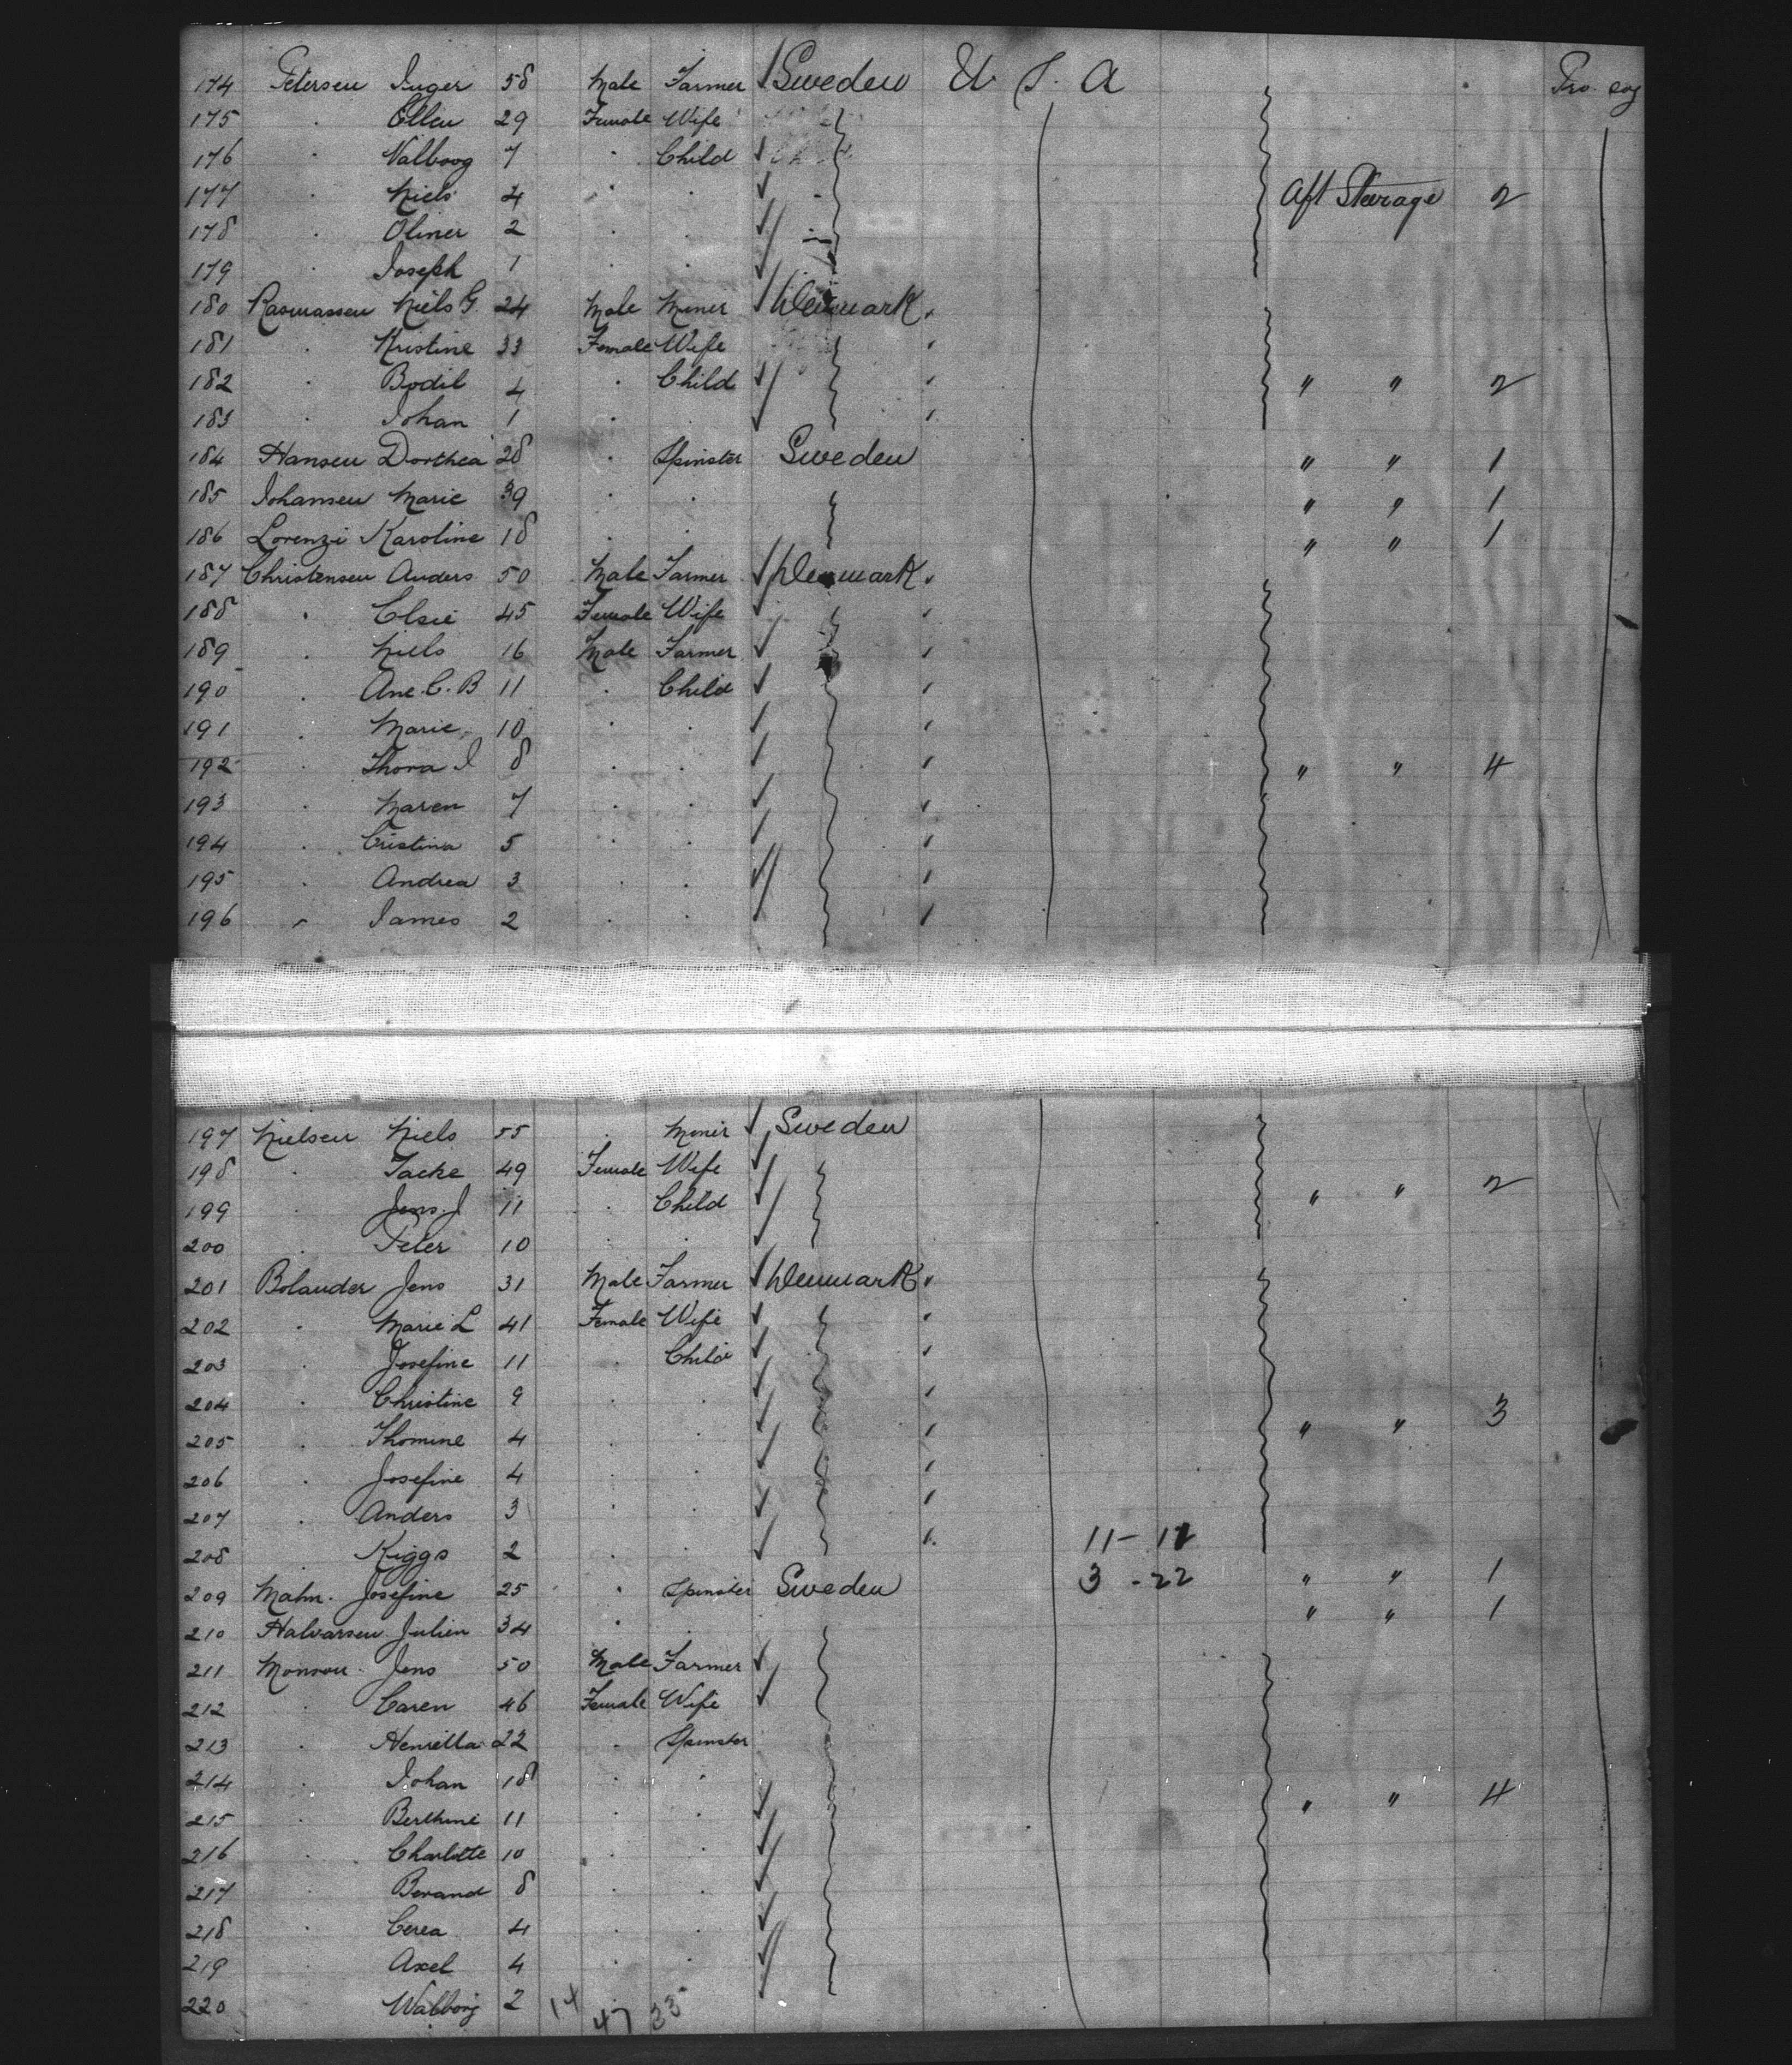 174 Petersen Inger 58 Male Farmer Sweden U S. A Pro. soj
175 " Ellen 29 Female Wife
176 " Valborg 7 " Child
177 " Niels 4 " " Aft Steerage 2
178 " Oliner 2 " "
179 " Joseph 1 " "
180 Rasmassen Niels G. 24 Male Miner Denmark
181 " Kristine 33 Female Wife
182 " Bodil 4 " Child " " 2
183 " Johan 1 "
184 Hansen Dorthea 28 " Spinster Sweden " " 1
185 Johansen Marie 39 " " " " 1
186 Lorenzi Karoline 18 " " " " 1
187 Christensen Anders 50 Male Farmer Denmark
188 " Elsie 45 Female Wife
189 " Niels 16 Male Farmer
190 " Ane. C. B 11 " Child
191 " Marie 10 " "
192 " Thora I 8 " " " " 4
193 " Maren 7 " "
194 " Cristina 5 " "
195 " Andrea 3 " "
196 " James 2 " "
197 Nielsen Niels 55 " Miner Sweden
198 " Jacke 49 Female Wife
199 " Jens. J 11 " Child " " 2
200 " Peter 10 " "
201 Bolander Jens 31 Male Farmer Denmark
202 " Marie L 41 Female Wife
203 " Josefine 11 " Child
204 " Christine 9 " "
205 " Thomine 4 " " " " 3
206 " Josefine 4 " "
207 " Anders 3 " "
208 " Kiggs 2 " " 11 -
209 Malm. Josefine 25 " Spinster Sweden 3 - 22 " " 1
210 Halvarsen Julien 34 " " " 1
211 Monson Jens 50 Male Farmer
212 " Caren 46 Female Wife
213 " Henrella 22 " Spinster
214 " Johan 18 " "
215 " Berthine 11 " " " " 4
216 " Charlotte 10 " "
217 " Berand 8 " "
218 " Cerea 4 " "
219 " Axel 4 " "
220 Walborg 2 14 47 33